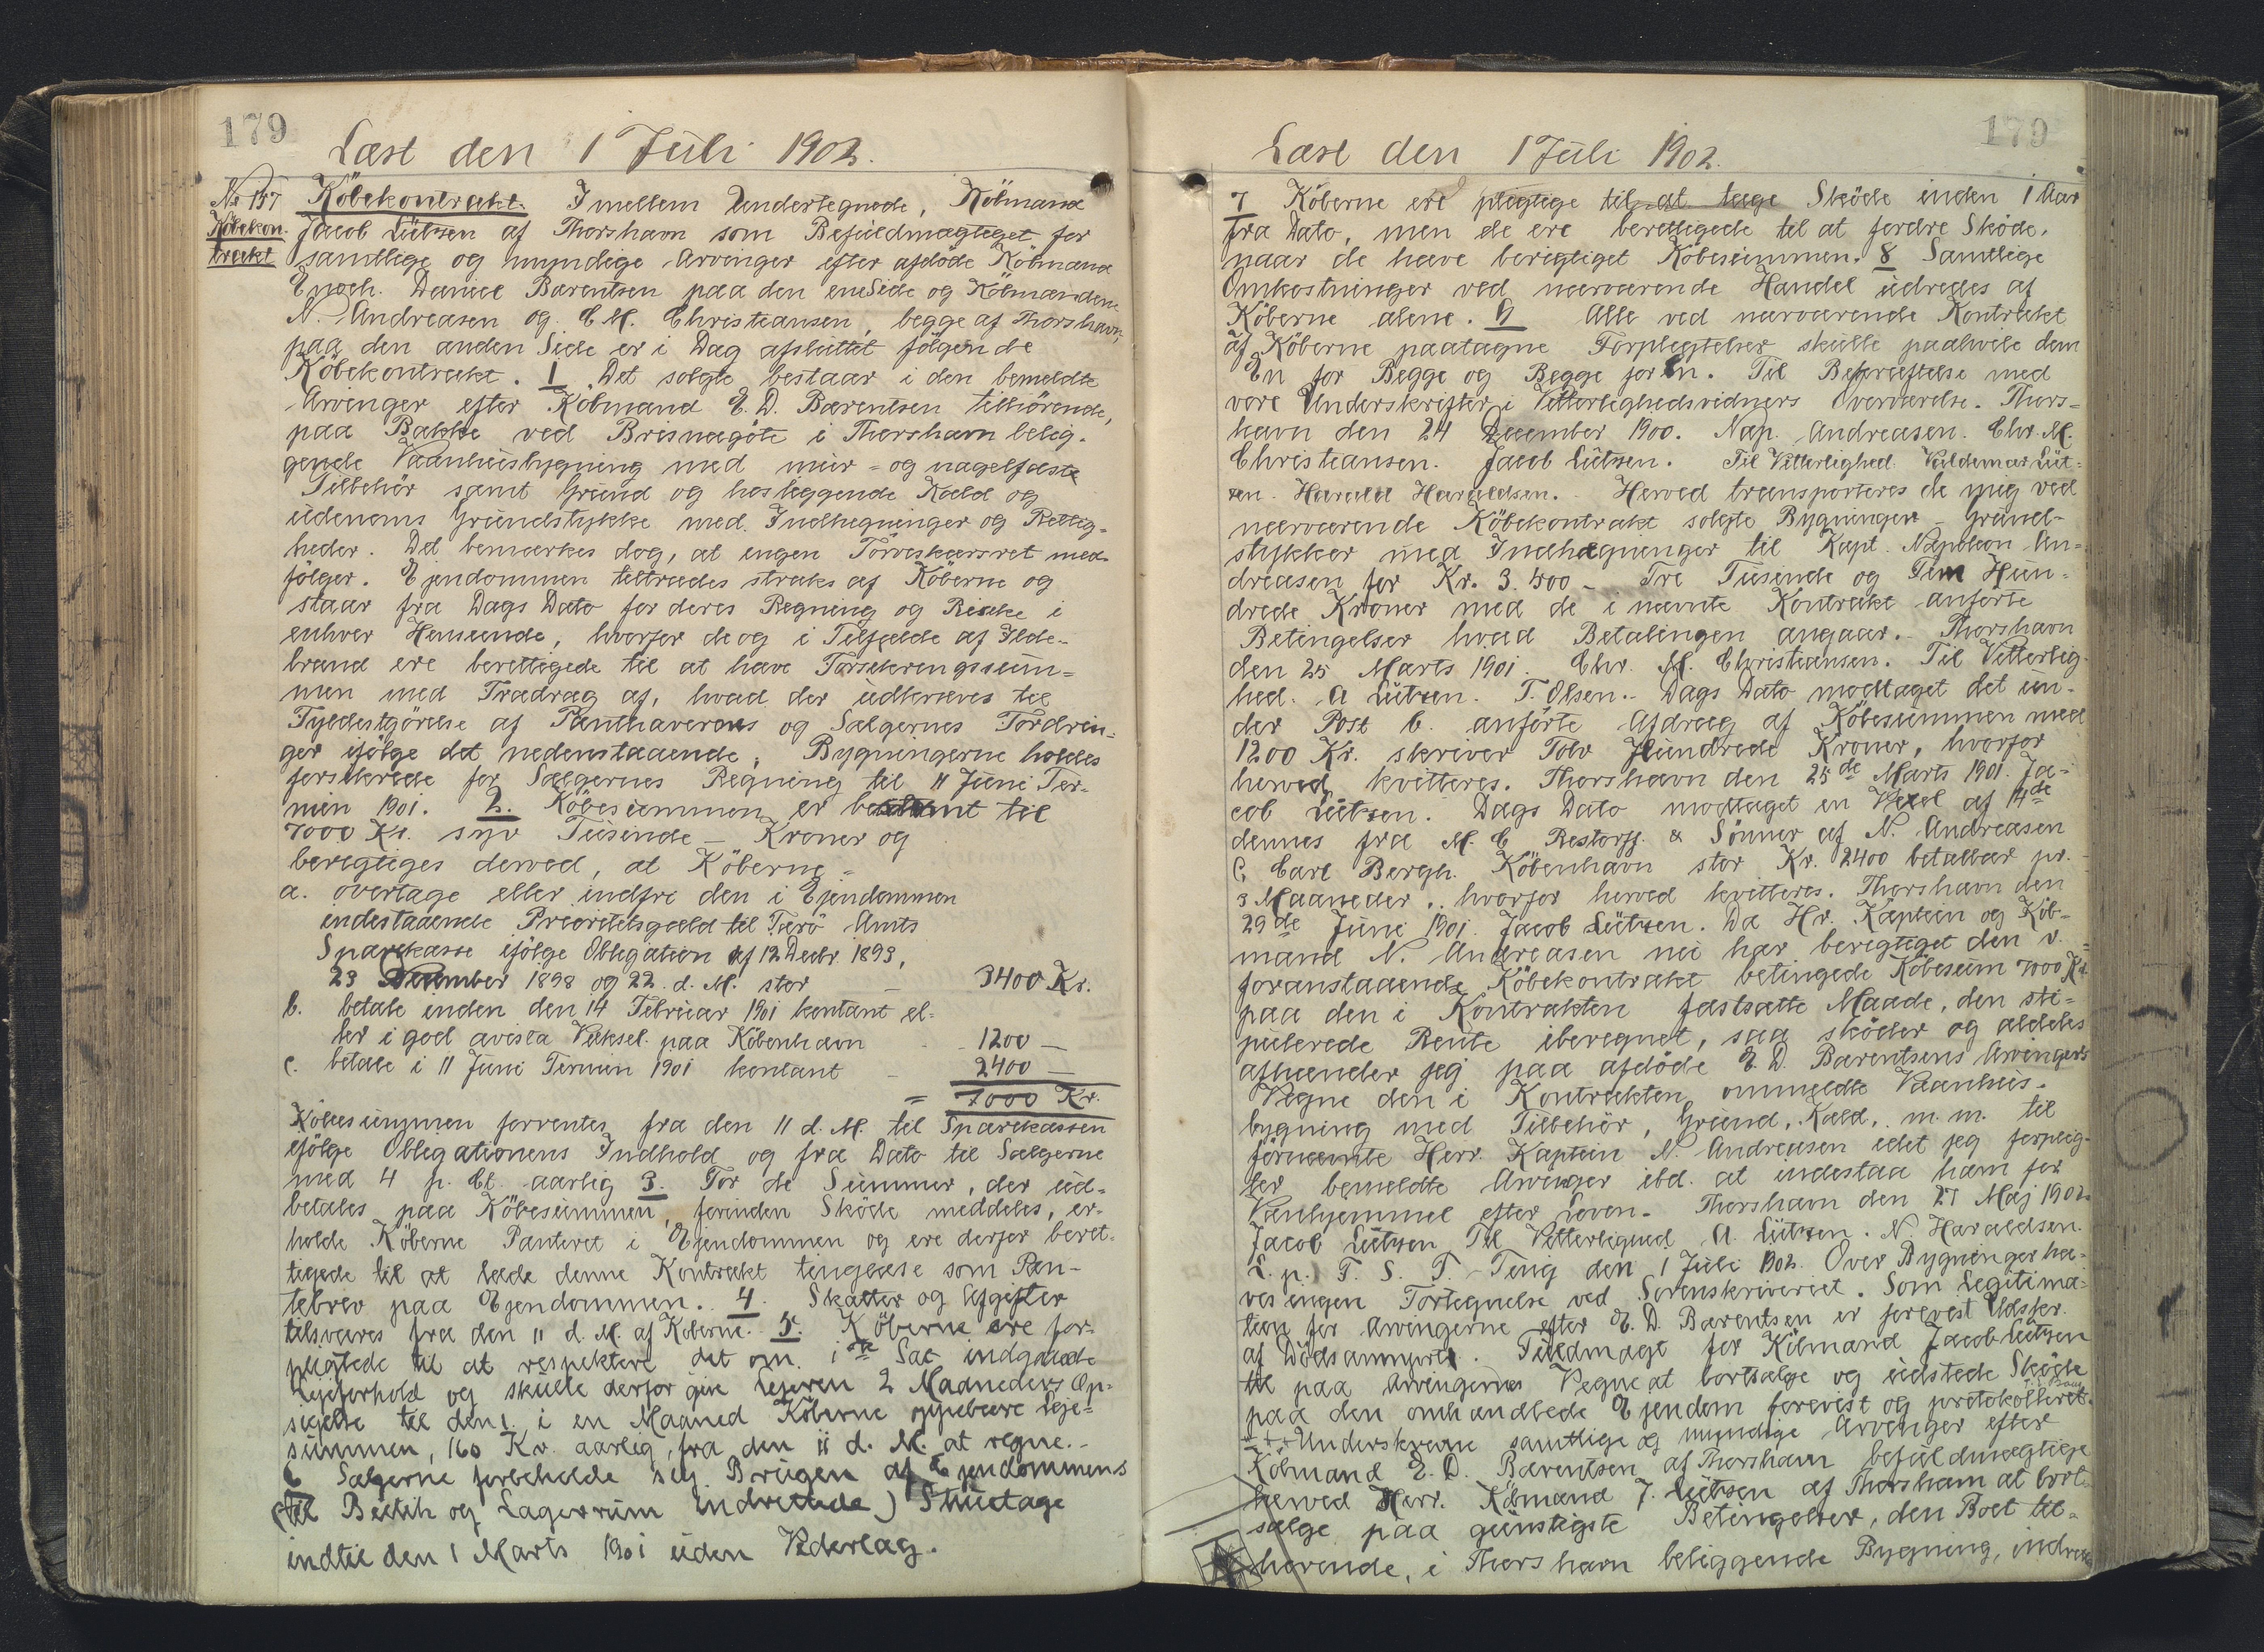 179
Læst den 1 Juli 1902.
No 157
Købekon-
trakt
Købekontrakt. Imellem Undertegnede, Købmand
Jacob Lützen af Thorshavn som Befuldmægtiget for
samtlige og myndige Arvinger efter afdöde Købmand
Enoch Daniel Bærentsen paa den ene Side og Købmændene
N. Andreasen og C. M. Christiansen, begge af Thorshavn,
paa den anden Side er i Dag afsluttet følgende
Købekontrakt. 1 Det solgte bestaar i den bemeldte
Arvinger efter Købmand E. D. Bærentsen tilhörende,
paa Bakke ved Brisnagöte i Thorshavn belig-
gende Vaanhusbygning med mur- og nagelfaste
Tilbehör samt Grund og hosliggende Kald og
udenoms Grundstykke med Indhegninger og Rettig-
heder. Det bemærkes dog, at ingen Törveskærsret med-
fölger. Ejendommen tiltrædes straks af Köberne og
staar fra Dags Dato for deres Regning og Risiko i
enhver Henseende, hvorfor de og i Tilfælde af Ilde-
brand ere berettigede til at hæve Forsikringssum-
men med Fradrag af, hvad der udkræves til
Fyldestgörelse af Panthavernes og Sælgernes Fordrin-
ger ifölge det nedenstaaende. Bygningerne holdes
forsikrede for Sælgernes Regning til 11 Juni Ter-
min 1901. 2. Köbesummen er bestemt til
7000 Kr. syv Tusinde - Kroner og
berigtiges derved, at Köberne -
a. overtage eller indfri den i Ejendommen
indestaaende Prioritetsgæld til Færö Amts
Sparekasse ifölge Obligation af 12 Decbr. 1893,
23 December 1898 og 22. d. M. stor - 3400 Kr.
b. betale inden den 14 Februar 1901 kontant el-
ler i god avista Veksel paa København - 1200 -
c. betale i 11 Juni Termin 1901 kontant - 2400 -
= 7000 Kr.
Købesummen forrentes fra den 11 d. M. til Sparekassen
ifölge Obligationens Indhold og fra Dato til Sælgerne
med 4 p. Ct. aarlig 3. For de Summer, der ud-
betales paa Köbesummen, forinden Sköde meddeles, er-
holde Köberne Panteret i Ejendommen og ere derfor beret-
tigede til at lade denne Kontrakt tinglæse som Pan-
tebrev paa Ejendommen. 4. Skatter og Afgifter
tilsvares fra den 11 d. M. af Köberne. 5. Köberne ere for-
pligtede til at respektere det om 1ste Sal indgaaede
Lejeforhold og skulle derfor give Lejeren 2 Maaneders Op-
sigelse til den 1. i en Maaned Köberne oppebære Leje-
summen, 160 Kr. aarlig, fra den 11 d. M. at regne.-
6 Sælgerne forbeholde sig Brugen af Ejendommens
(til Butik og Lagerrum indrettede) Stuetage
indtil den 1 Marts 1901 uden Vederlag.
179
Læst den 1 Juli 1902.
7 Köberne ere pligtige til at tage Sköde inden 1 Aar
fra Dato, men de ere berettigede til at fordre Sköde,
naar de have berigtiget Købesummen. 8 Samtlige
Omkostninger ved nærværende Handel udredes af
Köberne alene. 9 Alle ved nærværende Kontrakt
af Köberne paatagne Forpligtelser skulle paahvile dem
En for Begge og Begge for En. Til Bekræftelse med
vore Underskrifter i Vitterlighedsvidners Overværelse. Thors-
havn den 24 December 1900. Nap. Andreasen. Chr. M.
Christiansen. Jacob Lützen. Til Vitterlighed. Valdemar Lüt-
zen. Harald Haraldsen. - Herved transporteres de mig ved
nærværende Köbekontrakt solgte Bygninger - Grund-
stykker med Indhægninger til Kapt. Napoleon An-
dreasen for Kr. 3.500 - Tre Tusende og Fem Hun-
drede Kroner med de i nævnte Kontrakt anførte
Betingelser hvad Betalingen angaar. - Thorshavn
den 25 Marts 1901. Chr. M. Christiansen. Til Vitterlig-
hed. A Lützen. T. Olsen. - Dags Dato modtaget det un-
der Post b. anførte Afdrag af Købesummen med
1200 Kr. skriver Tolv Hundrede Kroner, hvorfor
herved kvitteres. Thorshavn den 25de Marts 1901. Ja-
cob Lützen. Dags Dato modtaget en Vexel af 14de
dennes fra M. C Restorff & Sönner af N. Andreasen
C. Carl Bergh. København stor Kr. 2400 betalbar pr.
3 Maaneder, hvorfor herved kvitteres. Thorshavn den
29de Juni 1901. Jacob Lützen. Da Hr. Kaptein og Köb-
mand N. Andreasen nu har berigtiget den v.
foranstaaende Købekontrakt betingede Köbesum 7000 Kr
paa den i Kontrakten fastsatte Maade, den sti-
pulerede Rente iberegnet, saa sköder og aldeles
afhænder jeg paa afdöde E. D. Bærentsens Arvingers
Vegne den i Kontrakten ommeldte Vaanhus-
bygning med Tilbehör, Grund, Kald, m.m. til
fornævnte Herr. Kaptein N. Andreasen idet jeg forplig-
ter bemeldte Arvinger ibd. at indestaa ham for
Vanhjemmel efter Loven. - Thorshavn den 27 Maj 1902
Jacob Lützen Til Vitterlighed A. Lützen. N. Haraldsen.
L. p. F. S. T. Ting den 1 Juli 1902. Over Bygninger ha-
ves ingen Fortegnelse ved Sorenskriveriet. Som Legitima-
tion for Arvingerne efter E. D. Bærentsen er forevist Udskr.
af Dödsanmeld. Fuldmagt for Købmand Jacob Lützen
til paa Arvingernes Vegne at bortsælge og udstede Sköde
paa den omhandlede Ejendom forevist og protokolleret.
Underskrevne samtlige og myndige Arvinger efter
Købmand E. D. Bærentsen af Thorshavn befuldmægtige
herved Herr. Købmand J. Lützen af Thorshavn at bort-
sælge paa gunstigste Betingelser, den Boet til-
hørende, i Thorshavn beliggende Bygning, indrett